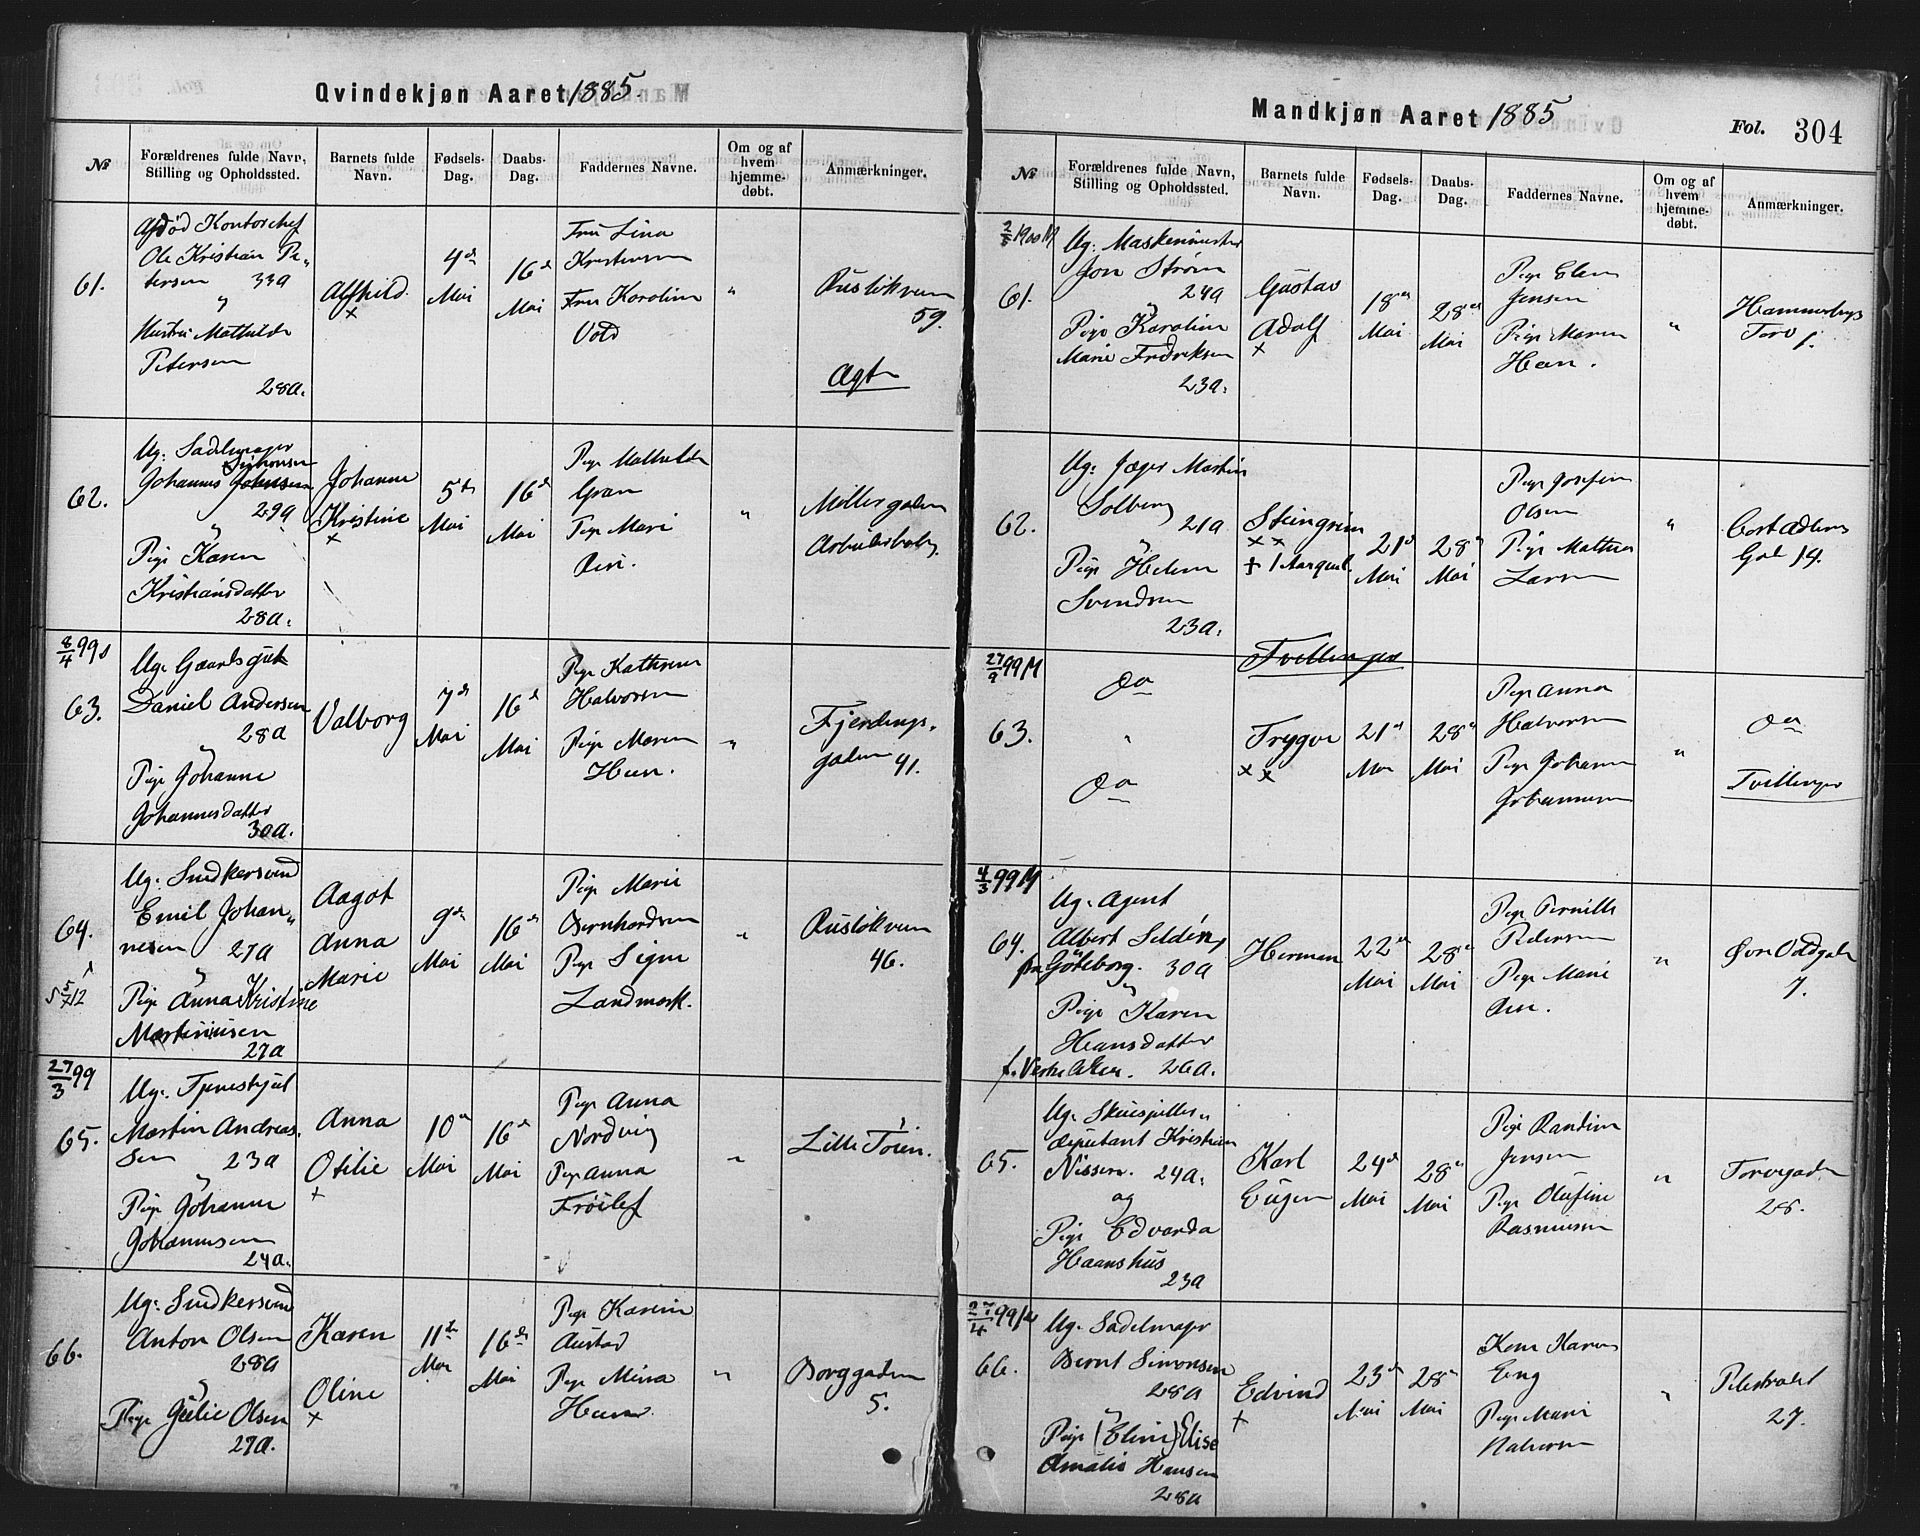 Qvindekjøn Aaret 1885.
№
Forældrenes fulde Navn, Stilling og Opholdssted.
Barnets fulde Navn.
Fødsels-Dag.
Daabs-Dag.
Faddernes Navne.
Om og af hvem hjemme-døbt.
Anmærkninger.
61.
Afdød Kontorchef
Ole Kristian Pe„
tersen 33a
„
Hustru Mathilde
Petersen
28a.
Alfhild
×
4de
Mai
16de
Mai
Fru Lina
Kristensen
Fru Karoline
Vold
„
Rusløkveien
59.
Ægte
62.
Ug: Sadelmager
Simonsen
Johannes Johnsen
29a
„
Pige Karen
Kristiansdatter
28a.
Johanne
Kristine
×
5te
Mai
16de
Mai
Pige Mathilde
Gran
Pige Marie
„
Møllergaden
63.
8/4 99
Ug: Gaardsgut
Daniel Andersen
28a
„
Pige Johanne
Johannesdatter
30a.
Valborg
7de
Mai
16de
Mai
Pige Kathrine
Halvorsen
Pige Maren
„
Fjerdings-
gaden
41.
64.
5/7 12
Ug: Snedkersvend
Emil Johan„
nesen 27a
„
Pige Anna Kristine
Martiniusen
27a
Aagot
Anna
Marie
9de
Mai
16de
Mai
Pige Marie
Bernhardsen
Pige Signe
Landmark.
„
Rusløkveien
46.
27/3 99
65.
Ug: Tjenestejut
Martin Andreas.
sen 23a
„
Pige Johanne
Johannesen
24a.
Anna
Otilie
×
10de
Mai
16de
Mai
Pige Anna
Nordvig
Pige Anna
„
Lille Tøien.
66.
Ug: Snedkersvend
Anton Olsen
28a
„
Pige Julie Olsen
27a.
Karen
Oline
×
11te
Mai
16de
Mai
Pige Karine
Austad
Pige Mina
„
Borggaden
5.
Mandkjøn Aaret 1885
Fol. 304
№
Forældrenes fulde Navn, Stilling og Opholdssted.
Barnets fulde Navn.
Fødsels-Dag.
Daabs-Dag.
Faddernes Navne.
Om og af hvem hjemme-døbt.
Anmærkninger.
61.
Ug: Maskenmester
Jon Strøm
24a
„
Pige Karoline
Marie Fredriksen
23a.
Gustav
Adolf
×
18de
Mai
28de
Mai
Pige Elen
Jensen
Pige Maren
„
Hammersbergs
Torv 1.
62.
Ug: Jæger Martin
Solberg
21a
„
Pige Helene
Svendsen
23a.
Steingrim
× ×
† 1 Aar gml
21de
Mai
28de
Mai
Pige Josefine
Olsen
Pige Mathea
Larsen
„
Cort Adlers
Gad 14.
Tvillinger
27/9 99 M
63.
Do
„
Do
Trygve
× ×
21de
Mai
28de
Mai
Pige Anna
Halvorsen
Pige Johanne
Johannesen
„
Do
Tvillinger
4/3 99 M
64.
Ug: Agent
Albert Seldén,
fra Göteborg. 30a
„
Pige Karen
Hansdatter
f. Vestre Aker. 26a.
Herman
22de
Mai
28de
Mai
Pige Pernille
Pedersen
Pige Marie
„
Øvre Voldgade
7.
65.
Ug: Skuespiller„
Kristian
Nissen. 24a.
og
Pige Edvarda
Haanshus
23a
Karl
Eugen
24de
Mai
28de
Mai
Pige Randine
Jensen
Pige Olufine
Rasmussen
„
Torvegaden
28.
27/4 99 M
66.
Ug: Sadelmager
Bernt Simonsen
28a
„
Pige (Eline) Elise
Amalie Hansen
28a
Edvind
×
23de
Mai
28de
Mai
Kone Karen
Eng
Pige Marie
Halvorsen
„
Pilestrædet
27.